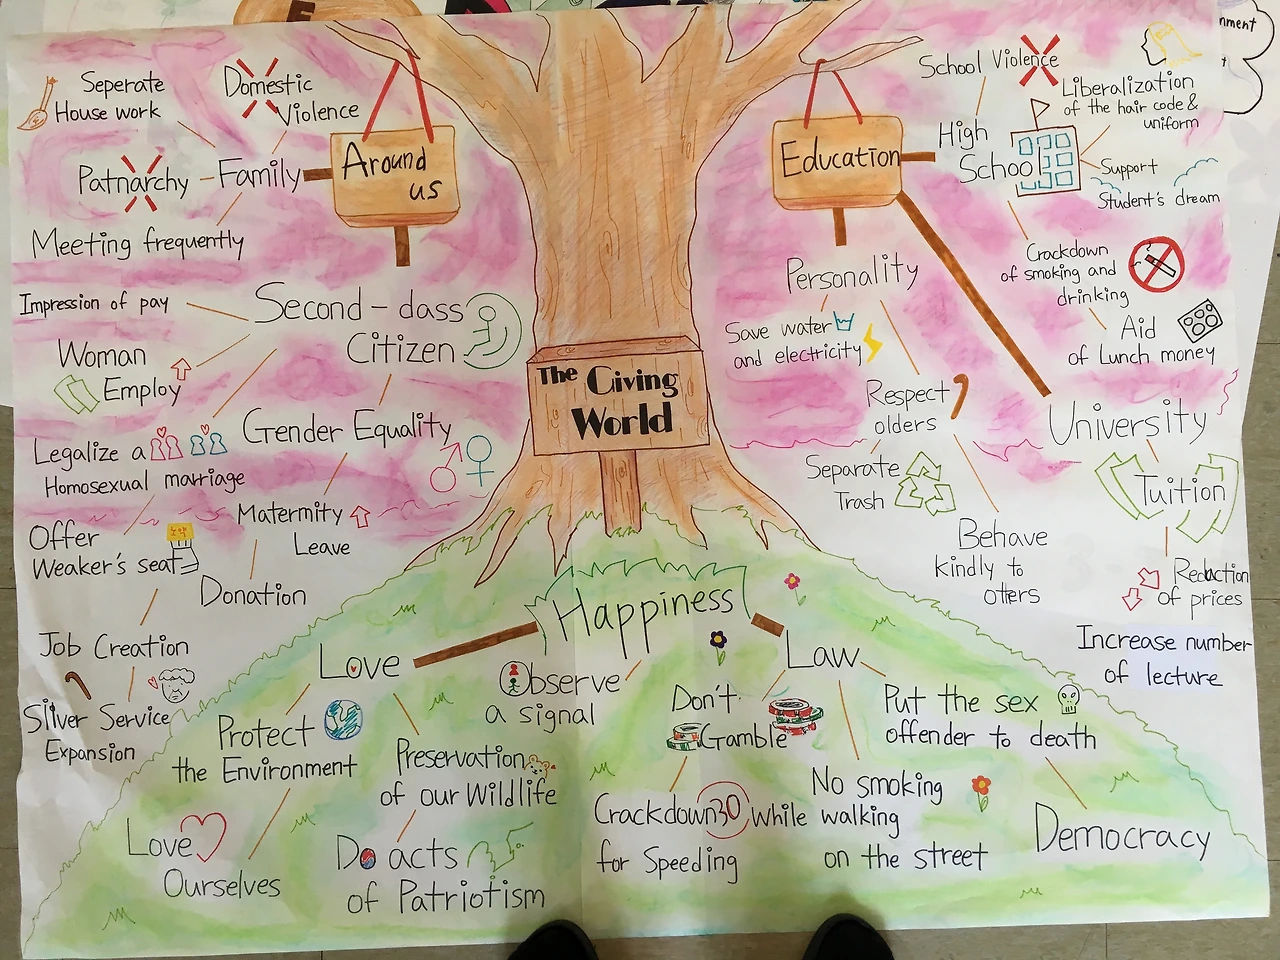 Seperate
House work
Domestic
Violence
Patriarchy
Family
Around
us
Meeting frequently
Impression of pay
Second-class
Citizen
Woman
Employ
Gender Equality
Legalize a
Homosexual marriage
Matermity
Leave
Offer
Weaker's seat
노약
Donation
Job Creation
Silver Service
Expansion
The Giving
World
Education
School Violence
Liberalization
of the hair code &
uniform
High
School
Support
Student's dream
Crackdown
of smoking and
drinking
Aid
of Lunch money
Personality
Save water
and electricity
Respect
olders
Separate
Trash
Behave
kindly to
others
University
Tuition
Reduction
of prices
Increase number
of lecture
Happiness
Love
Protect
the Environment
Preservation
of our Wildlife
Love
Ourselves
Do acts
of Patriotism
Observe
a signal
Law
Don't
Gamble
Crackdown 30
for Speeding
No smoking
while walking
on the street
Put the sex
offender to death
Democracy
nment